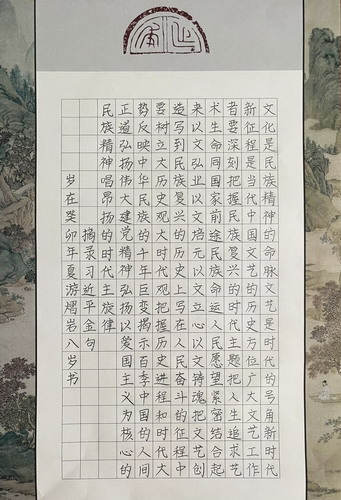 文化是民族精神的命脉文艺是时代的号角新时代
新征程是当代中国文艺的历史方位广大文艺工作
者要深刻把握民族复兴的时代主题把人生追求艺
术生命同国家前途民族命运人民愿望紧密结合起
来以文弘业以文培元以文立心以文铸魂把文艺创
造写到民族复兴的历史上写在人民奋斗的征程中
要树立大历史观大时代观把握历史进程和时代大
势反映中华民族的十年巨变揭示百年中国的人间
正道弘扬伟大建党精神弘扬以爱国主义为核心的
民族精神唱昂扬的时代主旋律
摘录习近平金句
岁在癸卯年夏游熠岩八岁书